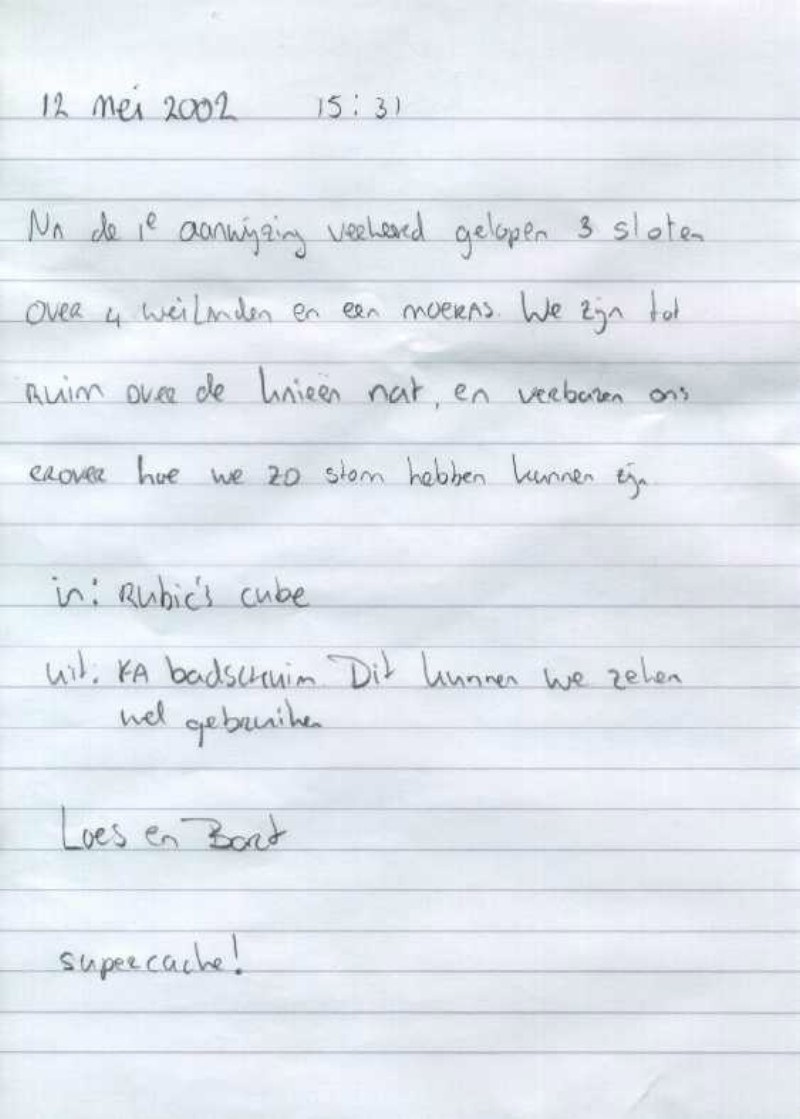 12 mei 2002 15:31
Na de 1e aanwijzing verkeerd gelopen 3 sloten
over 4 weilanden en een moeras. We zijn tot
ruim over de knieën nat, en verbazen ons
erover hoe we zo stom hebben kunnen zijn
in: Rubic's cube
uit: KA badschuim. Dit kunnen we zeker
wel gebruiken
Loes en Bart
supercache!